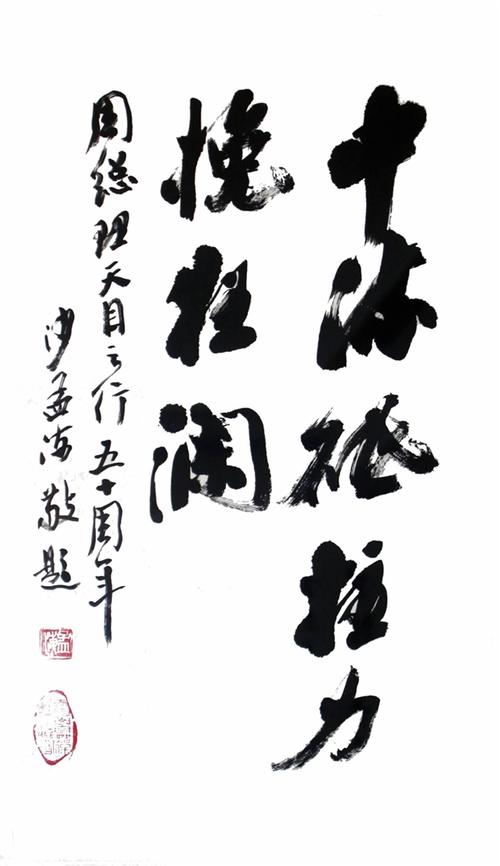 中流砥柱力
挽狂瀾
周總理天目之行五十周年
沙孟海敬題